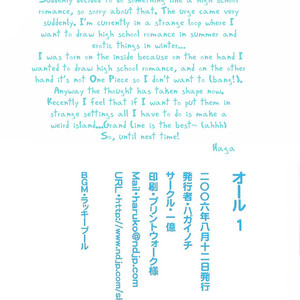 Suddenly decided to do something like a high school
romance, so sorry about that. The urge came very
suddenly. I'm currently in a strange loop where I
want to draw high school romance in summer and
erotic things in winter...
I was torn on the inside because on the one hand I
wanted to draw high school romance, and on the other
hand it's not One Piece so I don't want to (bang!).
Anyway the thought has taken shape now.
Recently I feel that if I want to put them in
strange settings all I have to do is make a
weird island...Grand Line is the best~ (ahhh)
So, until next time!
Haga
オール 1
二〇〇六年八月十二日発行
発行者・ハガイノチ
サークル・一億
印刷・プリントウォーク様
Mail・haruko@ndjp.com
URL・http://www.ndjp.com/sl
BGM・ラッキープール